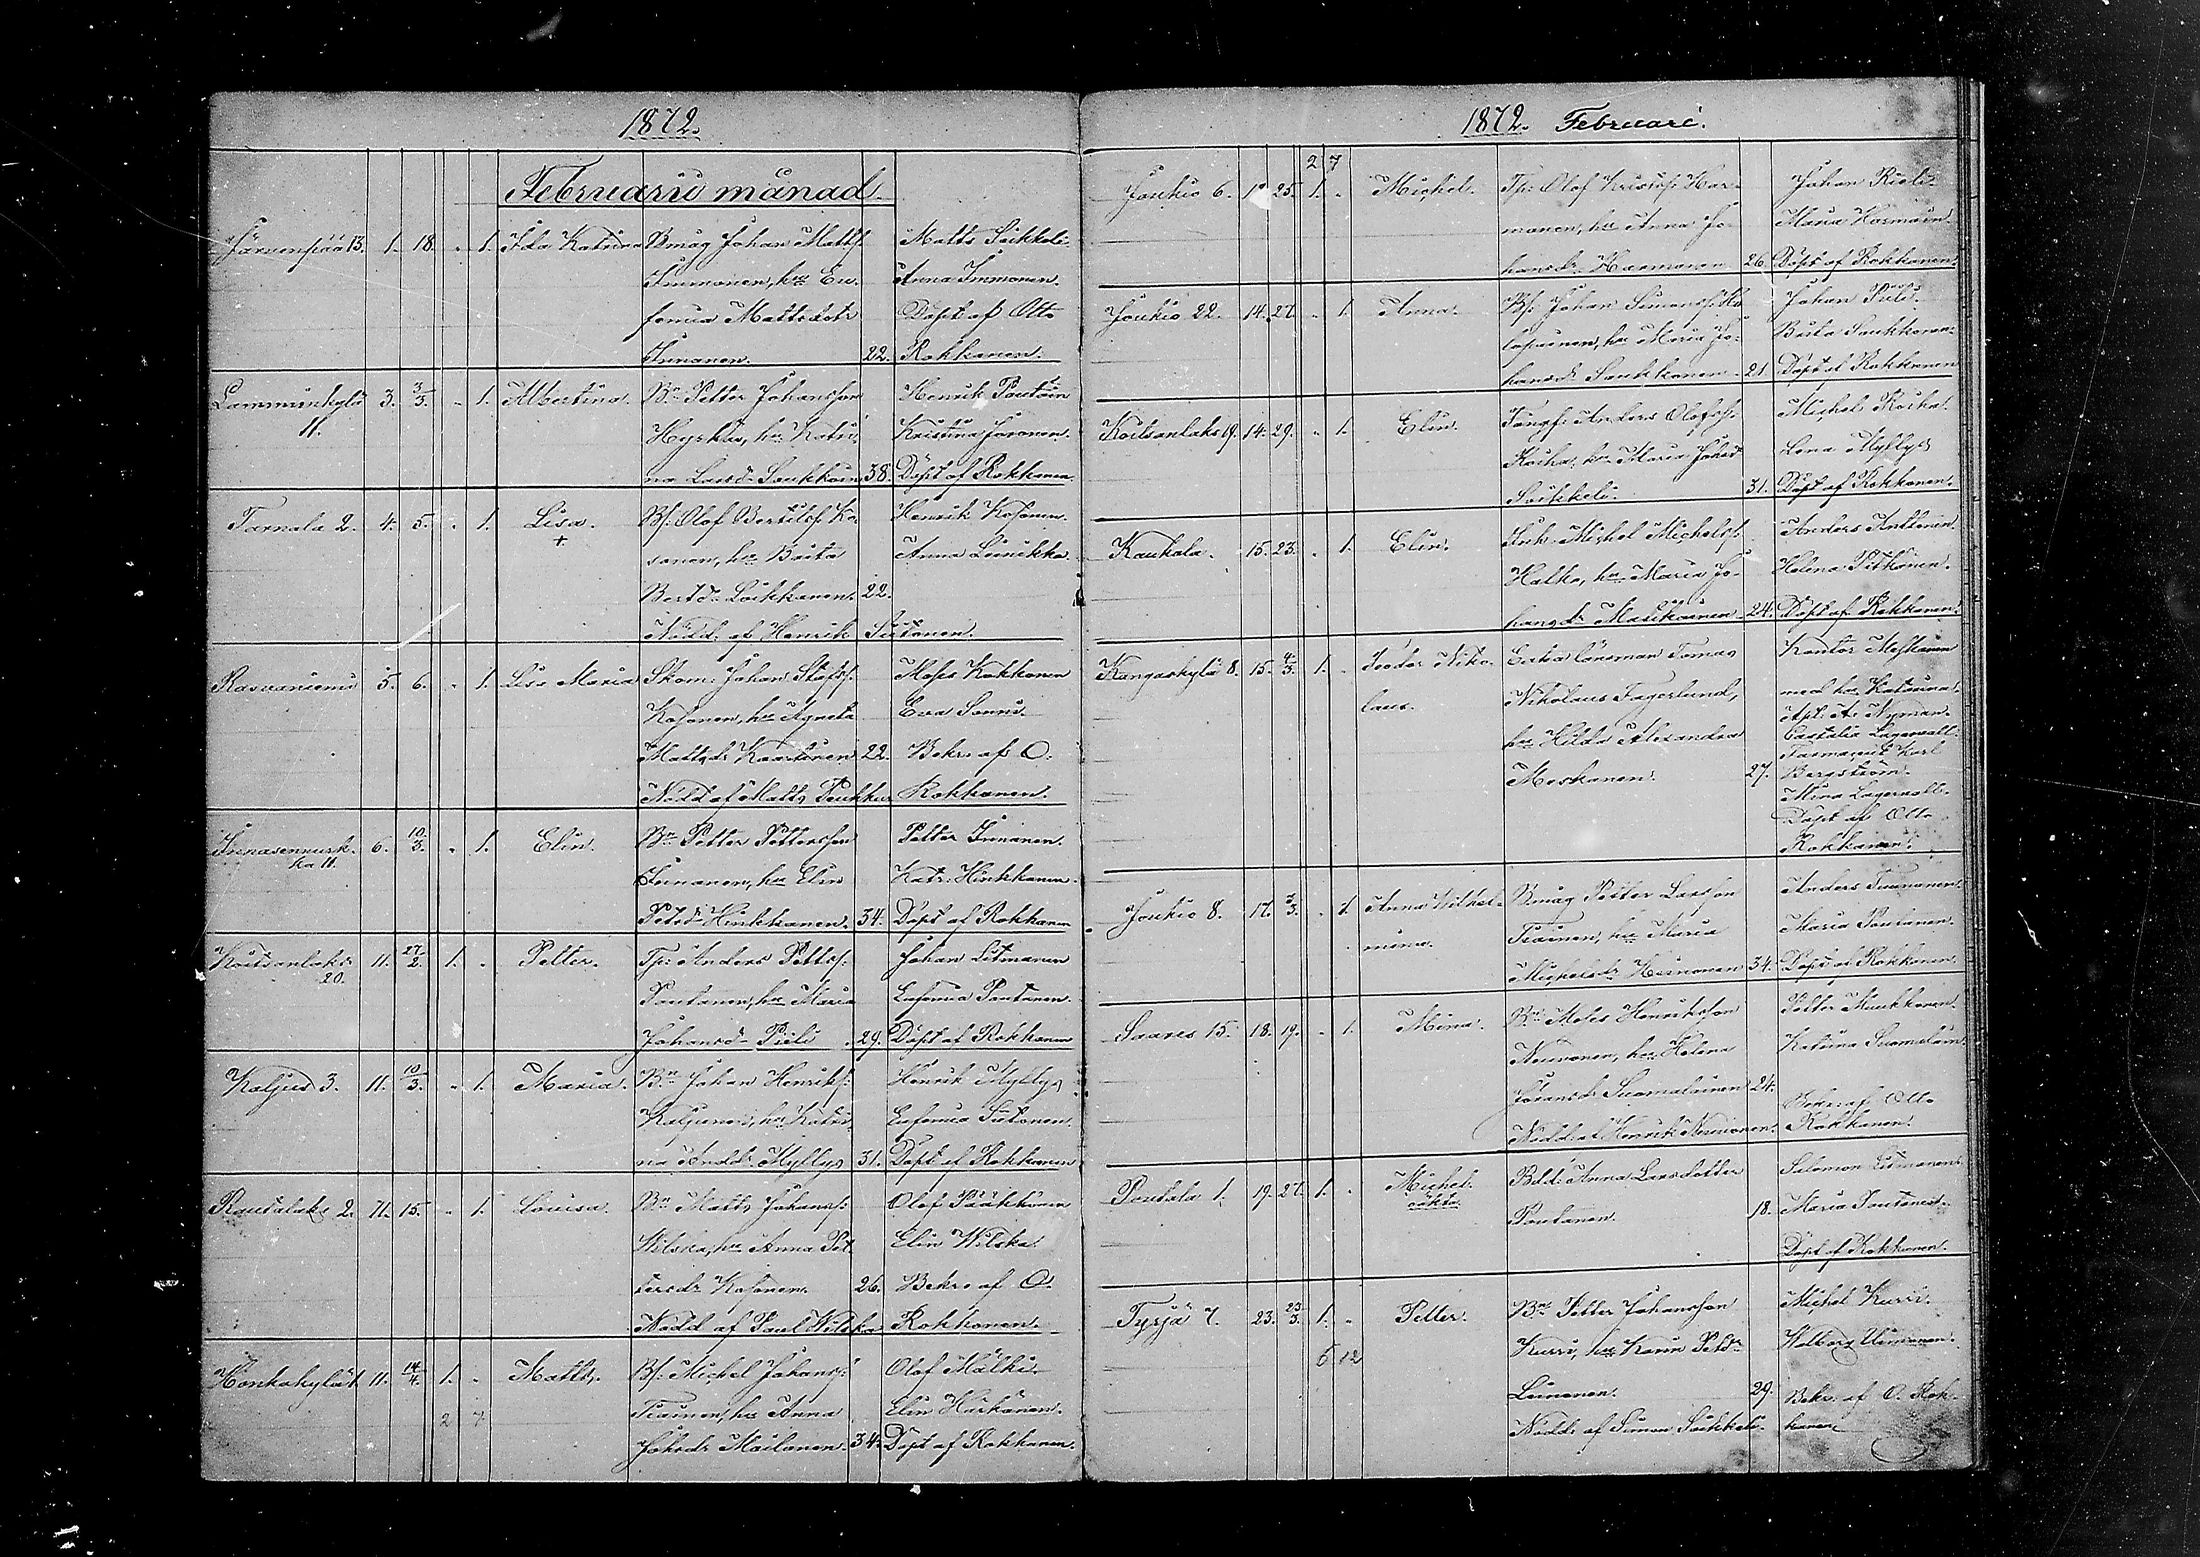 1872.
Februarii månad.
Järvenpää 13. 1. 18. „ 1. Ida Katrina Bmåg Johan Matts:
Immonen, h:u Eu-
femia Mattsdotr
Immonen. 22.
Matts Suikkeli
Anna Immonen.
Döpt af Otto
Rokkanen.
Lamminkylä 3. 3/3. „ 1. Albertina. Bn Petter Johansson
11.
Hyrkäs, h:u Katri-
na Larsd: Saukkoin 38.
Henrik Poutain
Kristina Joronen.
Döpt af Rokkanen
Tarnala 2. 4. 5. „ 1. Lisa. Bs: Olof Bertils: Ko-
+
sonen, h:u Brita
Bertd: Loikkanen. 22.
Nödd: af Henrik Sutonen.
Henrik Kosonen.
Anna Leinikka.
Rasvaniemi 5. 6. „ 1. Lisa Maria Skom: Johan Stafs:
Kosonen, h:u Agneta
Mattsd: Kaartinen 22.
Nödd af Matts Puukka
Moses Kokkonen
Eva Sonni.
Bekr: af O.
Rokkanen.
6. 10/3. „ 1. Elin. Bn Petter Pettersson
ka 11.
Innanen, h:u Elin
Petsd: Hinkkanen. 34.
Petter Innanen.
Katr: Hinkkanen.
Döpt af Rokkanen
Koitsanlaks 11. 27/2. 1. „ Petter. Tp: Anders Petts:
20.
Poutanen, h:u Maria
Johansd: Pieli 29.
Johan Litmanen
Eufemia Poutanen
Döpt af Rokkanen
Kaljus 3. 11. 10/3. „ 1. Maria. Bn Johan Henriks:
Kaljunen, h:u Katri-
na Andd: Myllys 31.
Henrik Myllys
Eufemia Sutonen.
Döpt af Rokkanen
Rautalaks 2. 11. 15. „ 1. Lovisa. Bn Matts Johans:
Wilska, h:u Anna Pet-
tersd: Kosonen. 26.
Nödd af Paul Wilska
Olof Pääkkönen
Elin Wilska.
Bekr: af O.
Rokkanen.
Honkakylä 1. 11. 14/4. 1. „ Matts. Bs: Michel Johans:
2 7
Tiainen, h:u Anna
Johsd: Mailanen. 34.
Olof Mälki.
Elin Härkönen.
Döpt af Rokkanen.
1872. Februari.
2 7
Joukio 6. 12 25. 1. „ Michel. Tp: Olof Kristofs: Har-
manen, h:u Anna Jo-
hansd: Haemanen 26.
Johan Pieli.
Maria Harmain.
Döpt af Rokkanen
Joukio 22. 14. 27. „ 1. Anna. Bs: Johan Simonss: Ho-
lopainen, h:u Maria Jo-
hansd: Saukkonen 21.
Johan Pieli.
Brita Saukkonen.
Döpt af Rokkanen
Koitsanlaks 19. 14. 29. „ 1. Elin. Torpf: Anders Olofs:
Kosha, h:u Maria Johsd:
Suikkeli. 31.
Michel Kosha.
Lena Myllys
Döpt af Rokkanen.
Kaukola. 15. 23. „ 1. Elin. Inh: Michel Michels:
Hatka, h:u Maria Jo-
hansd: Masikainen 24.
Anders Anttonen
Helena Pitkänen.
Döpt af Rokkanen.
Kangaskylä 8. 15. 4/3. 1. „ Teodor Niko- Extra länsman Tomas
laus. Nikolaus Fagerlund,
h:u Hilda Alexandra
Meskanen. 27.
Kantor Meskanen
med h:u Katarina.
Apt: A. Nyman.
Castalia Lagervall.
Karl
Bergström.
Mina Lagervall.
Döpt af Otto
Rokkanen.
Joukio 8. 17. 3/3. „ 1. Anna Wilhel- Bmåg Petter Larsson
mina. Tiainen, h:u Maria
Michelsd: Heinonen 34.
Anders Innanen
Maria Poutanen.
Döpt af Rokkanen.
Saares 15. 18. 19. „ 1. Mina. Bn Moses Henriksson
Neuvonen, h:u Helena
Johansd: Suomalainen 24.
Nödd: af Henrik Neuvonen.
Petter Muukkonen.
Katrina Suomalain.
Bekr: af Otto
Rokkanen.
Poutala 1. 19. 27. 1. „ Michel. Bdt: Anna Larsdotter
oäkta Poutanen. 18.
Salomon Litmanen.
Maria Poutanen.
Döpt af Rokkanen.
Tyrjä 7. 23. 23/3. 1. „ Petter. Bn Petter Johansson
5 12
Kurri, h:u Karin Petd:
Leinonen. 29.
Nödd: af Simon Suikkeli.
Michel Kurri.
Walborg Uimonen.
Bekr: af O. Rok-
kanen